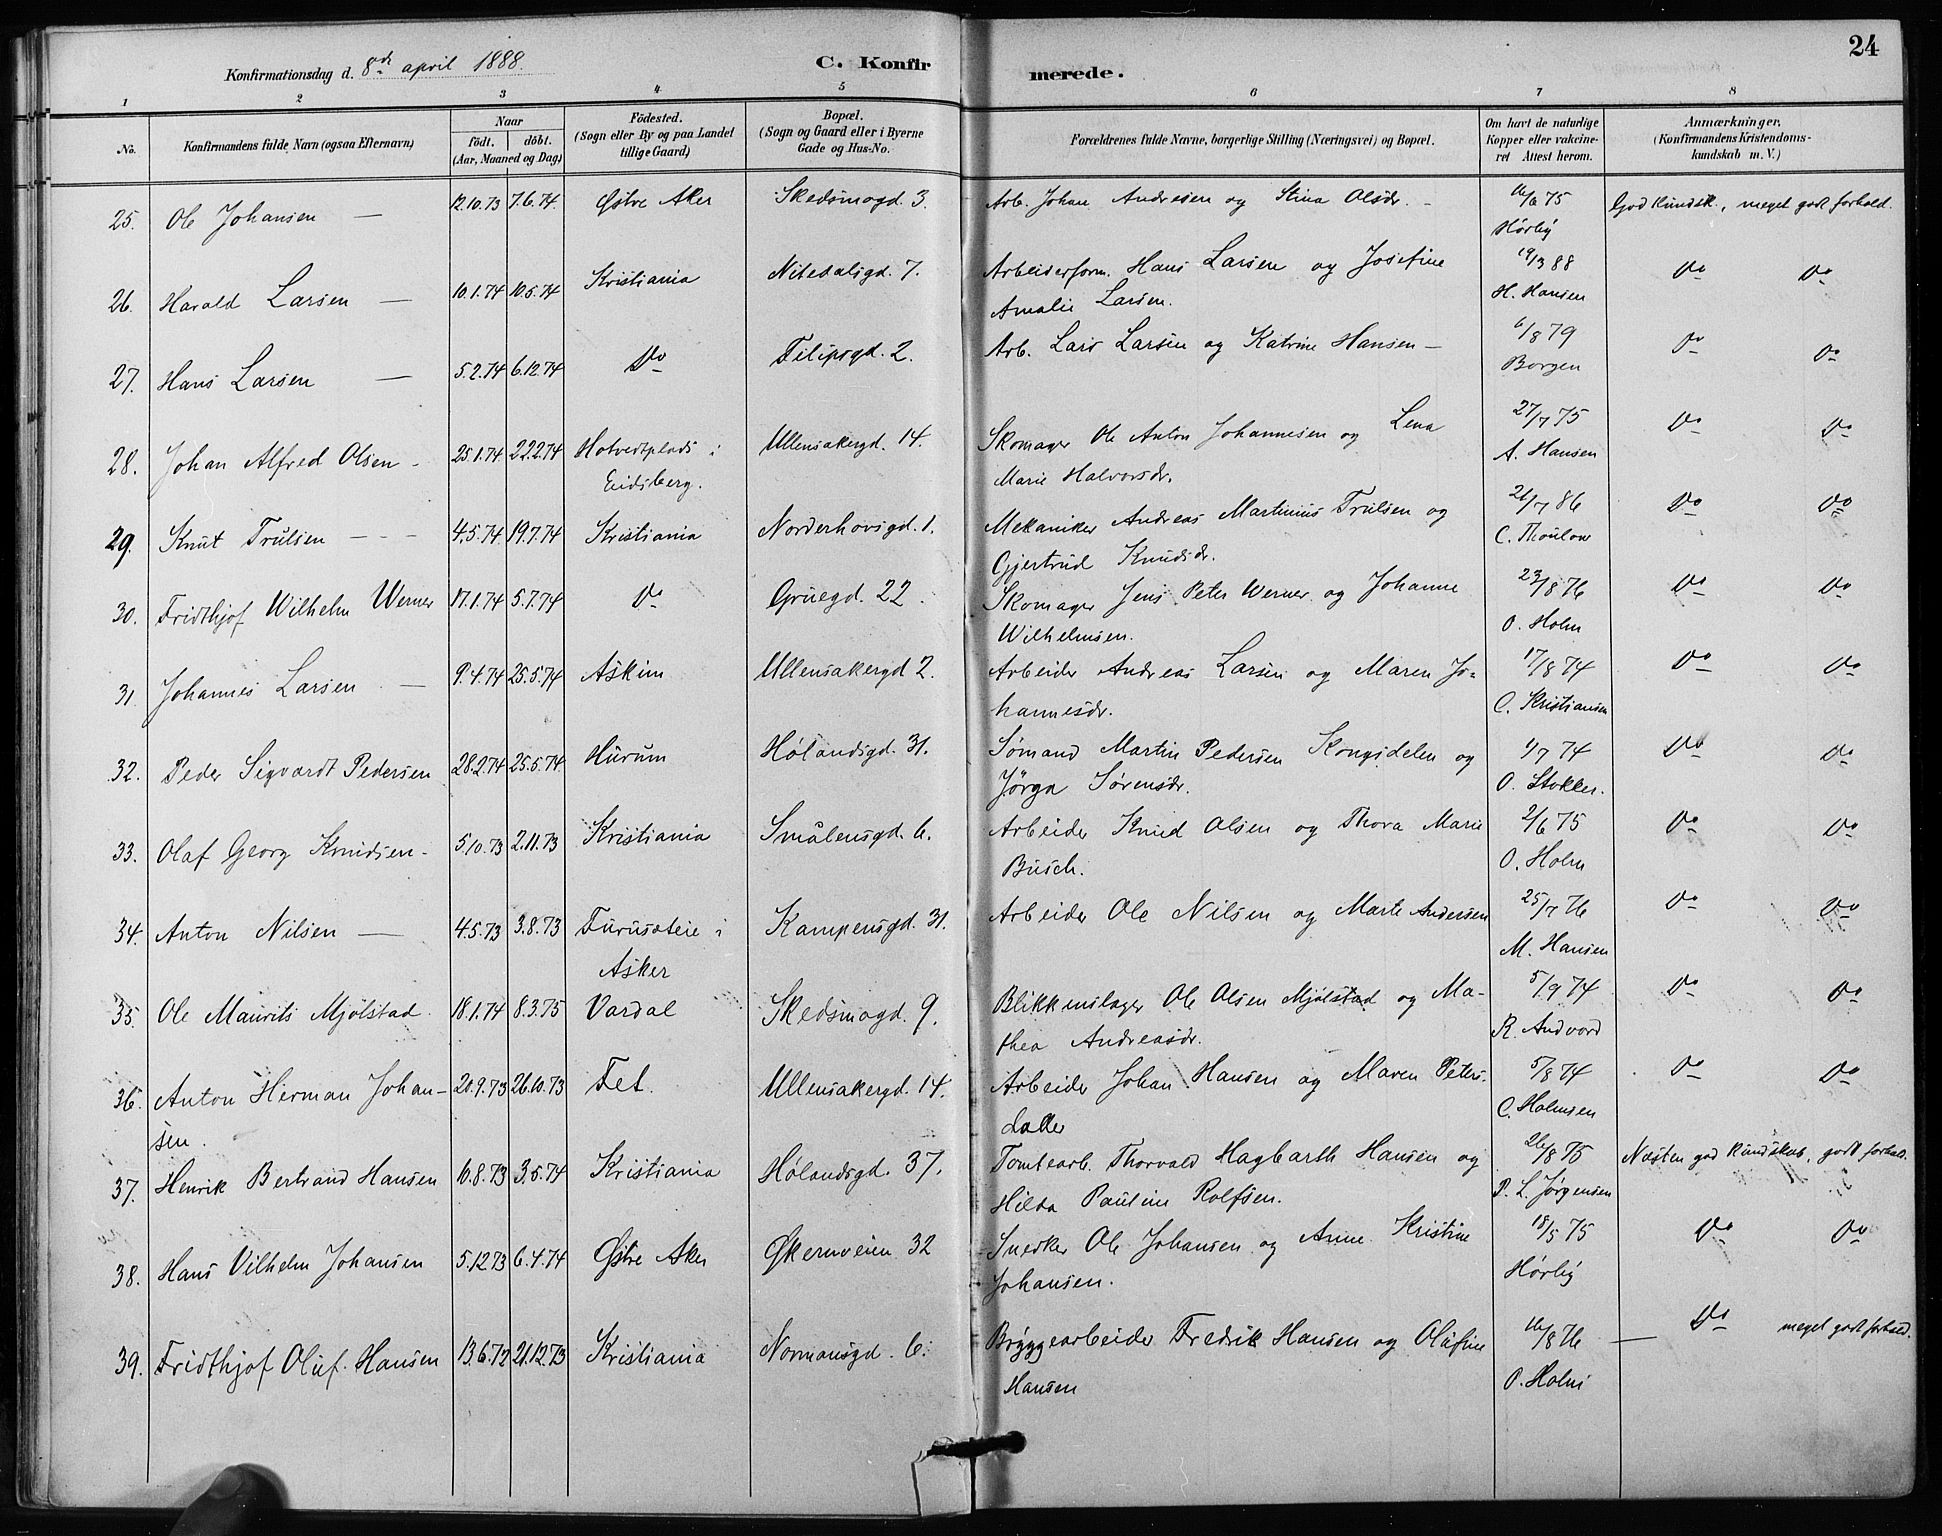 24
Konfirmationsdag d. 8de april 1888. C. Konfirmerede.
1 2 3 4 5 6 7 8
No. Konfirmandens fulde Navn (ogsaa Efternavn) Naar født. døbt. (Aar, Maaned og Dag) Födested. (Sogn eller By og paa Landet tillige Gaard) Bopæl. (Sogn og Gaard eller i Byerne Gade og Hus-No. Forældrenes fulde Navne, borgerlige Stilling (Næringsvei) og Bopæl. Om havt de naturlige Kopper eller vakcineret Attest herom. Anmærkninger. (Konfirmandens Kristendomskundskab m. V.)
25. Ole Johansen — 12.10.73 7.6.74. Østre Aker Skedsmogd. 3. Arb. Johan Andresen og Stina Olsdr. – 16/6 75 God Kundsk., meget godt forhold.
Hørbÿ
26. Harald Larsen — 10.1.74 10.5.74 Kristiania Nitedalsgd. 7. Arbeiderform. Hans Larsen og Josefine 19/3 88 Do Do
Amalie Larsen. H. Hansen
27. Hans Larsen — 5.2.74 6.12.74 Do Filipsgd. 2. Arb. Lars Larsen og Katrine Hansen – 6/8 79 Do Do
Borgen
28. Johan Alfred Olsen – 25.1.74 22.2.74 Hotvedtplads i Ullensakergd. 14. Skomager Ole Anton Johannesen og Lena 27/7 75 Do Do
Eidsberg. Marie Halvorsdr. A. Hansen
29. Knut Trulsen – – – 4.5.74 19.7.74 Kristiania Norderhovsgd. 1. Mekaniker Andreas Martinius Trulsen og 26/7 86 Do Do
Gjertrud Knudsdr. C. Thoulow
30. Fridthjof Wilhelm Werner 17.1.74 5.7.74 Do Gruegd. 22. Skomager Jens Peter Werner og Johanne 23/8 76 Do Do
Wilhelmsen. O. Holm
31. Johannes Larsen. — 9.4.74 25.5.74 Askim Ullensakergd 2. Arbeider Andreas Larsen og Maren Jo- 17/8 74 Do Do
hannesdr. C. Kristiansen
32. Peder Sigvardt Pedersen 28.2.74 25.5.74. Hurum Hølandsgd. 31. Sømand Martin Pedersen Kongsdelen og 1/7 74 Do Do
Jørga Sørensdr. O. Stokker.
33. Olaf Georg Knudsen – 5.10.73 2.11.73 Kristiania Smålensgd. 6. Arbeider Knud Olsen og Thora Marie 2/6 75 Do Do
Busch. O. Holm
34. Anton Nilsen — 4.5.73 3.8.73 Furusæteie i Kampensgd. 31. Arbeider Ole Nilsen og Marte Andersen 25/7 76 Do Do
Asker M. Hansen
35. Ole Maurits Mjølstad. 18.1.74 8.3.75 Vardal Skedsmogd. 9. Blikkenslager Ole Olsen Mjølstad og Ma- 5/9 74 Do Do
thea Andreasdr. R. Andvord
36. Anton Herman Johan- 20.9.73 26.10.73 Fet. Ullensakergd. 14. Arbeider Johan Hansen og Maren Peters- 5/8 74 Do Do
sen. datter C. Holmsen
37. Henrik Bertrand Hansen 10.8.73 3.5.74 Kristiania Hølandsgd. 37. Tomtearb. Thorvald Hagbarth Hansen og 26/8 75 Næsten god Kundskab, godt forhold.
Hilda Pauline Rolfsen. P. L. Jørgensen
38. Hans Vilhelm Johansen 5.12.73 6.4.74 Østre Aker Økernveien 32 Snedker Ole Johansen og Anne Kristine 18/5 75 Do Do
Johansen. Hørbÿ
39. Fridthjof Oluf Hansen 13.6.72 21.12.73 Kristiania Normansgd. 6. Bryggearbeider Fredrik Hansen og Olufine 16/8 76 — Do meget godt forhold.
Hansen O. Holm